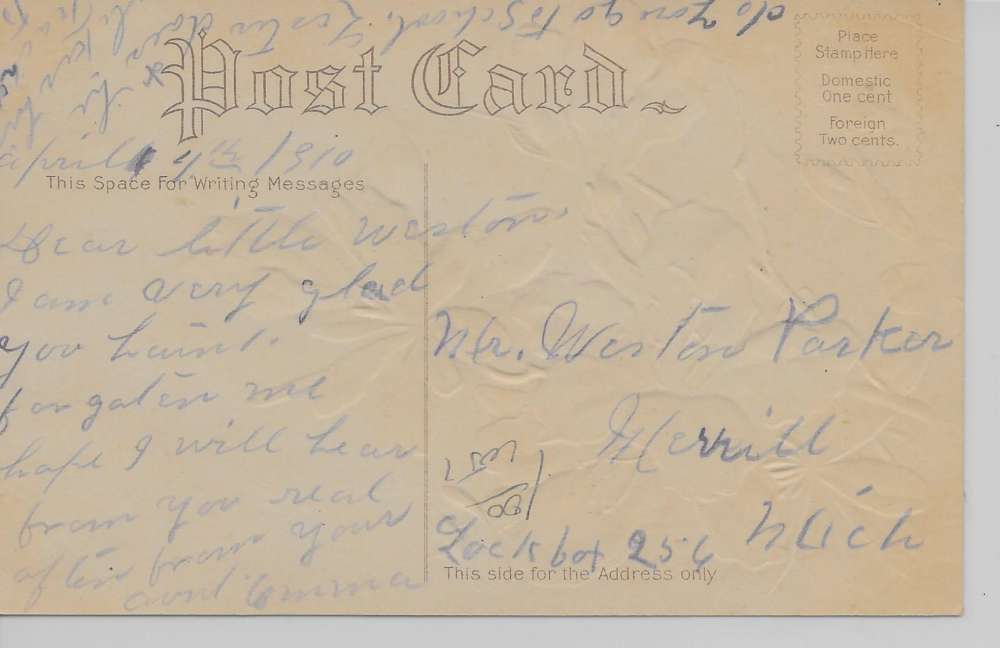 do you go to School. Lester
Post Card
Place
Stamp Here
Domestic
One cent
Foreign
Two cents.
april 1910
This Space For Writing Messages
Dear little Weston
I am very glad
you haint.
forgaten me
hope I will hear
from you real
often from your
aunt Emma
Mr. Weston Parker
Merrill
Mich
Lock box 256
This side for the Address only